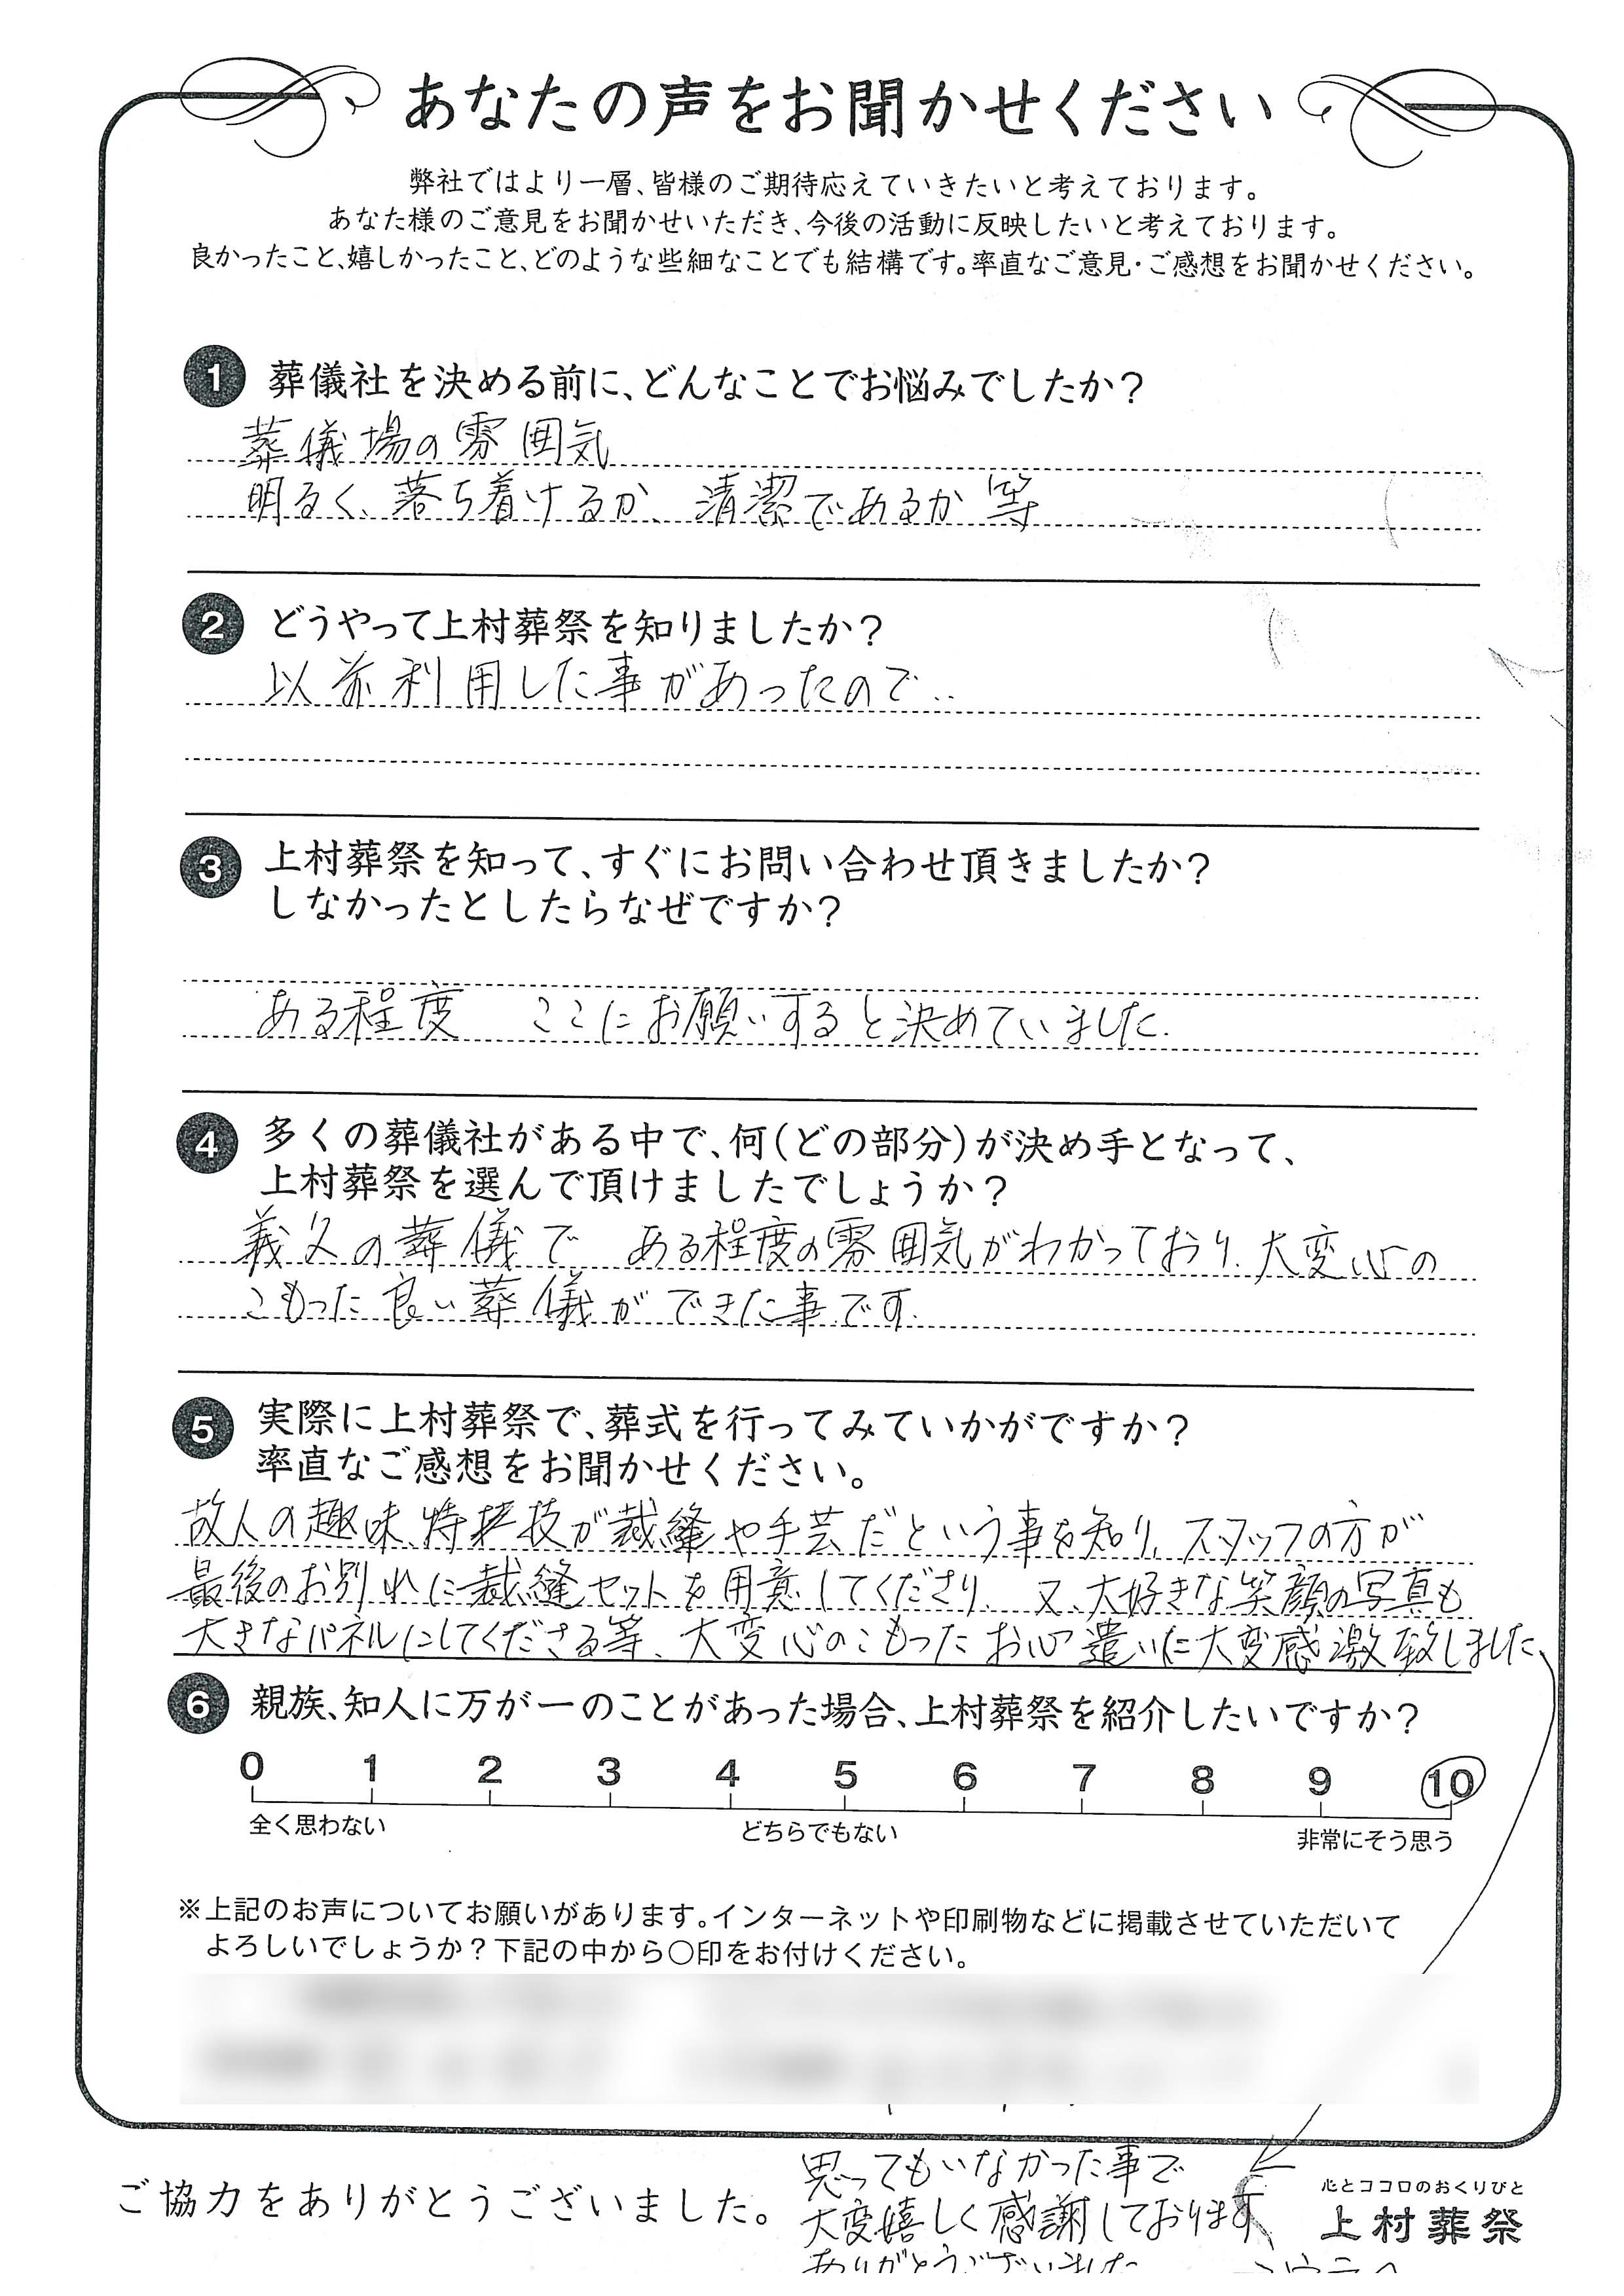 あなたの声をお聞かせください
弊社ではより一層、皆様のご期待応えていきたいと考えております。
あなた様のご意見をお聞かせいただき、今後の活動に反映したいと考えております。
良かったこと、嬉しかったこと、どのような些細なことでも結構です。率直なご意見・ご感想をお聞かせください。
1 葬儀社を決める前に、どんなことでお悩みでしたか？
葬儀場の雰囲気
明るく、落ち着けるか、清潔であるか 等
2 どうやって上村葬祭を知りましたか？
以前利用した事があったので‥
3 上村葬祭を知って、すぐにお問い合わせ頂きましたか？
しなかったとしたらなぜですか？
ある程度 ここにお願いすると決めていました.
4 多くの葬儀社がある中で、何（どの部分）が決め手となって、
上村葬祭を選んで頂けましたでしょうか？
義父の葬儀で ある程度の雰囲気がわかっており、大変心の
こもった良い葬儀ができた事です.
5 実際に上村葬祭で、葬式を行ってみていかがですか？
率直なご感想をお聞かせください。
故人の趣味、特技が裁縫や手芸だという事を知り、スタッフの方が
最後のお別れに裁縫セットを用意してくださり、又、大好きな笑顔の写真も
大きなパネルにしてくださる等、大変心のこもったお心遣いに大変感激致しました、
6 親族、知人に万が一のことがあった場合、上村葬祭を紹介したいですか？
0 1 2 3 4 5 6 7 8 9 10
全く思わない どちらでもない 非常にそう思う
※上記のお声についてお願いがあります。インターネットや印刷物などに掲載させていただいて
よろしいでしょうか？下記の中から○印をお付けください。
思ってもいなかった事で
大変嬉しく感謝しております、
ありがとうございました
ご協力をありがとうございました。
心とココロのおくりびと
上村葬祭